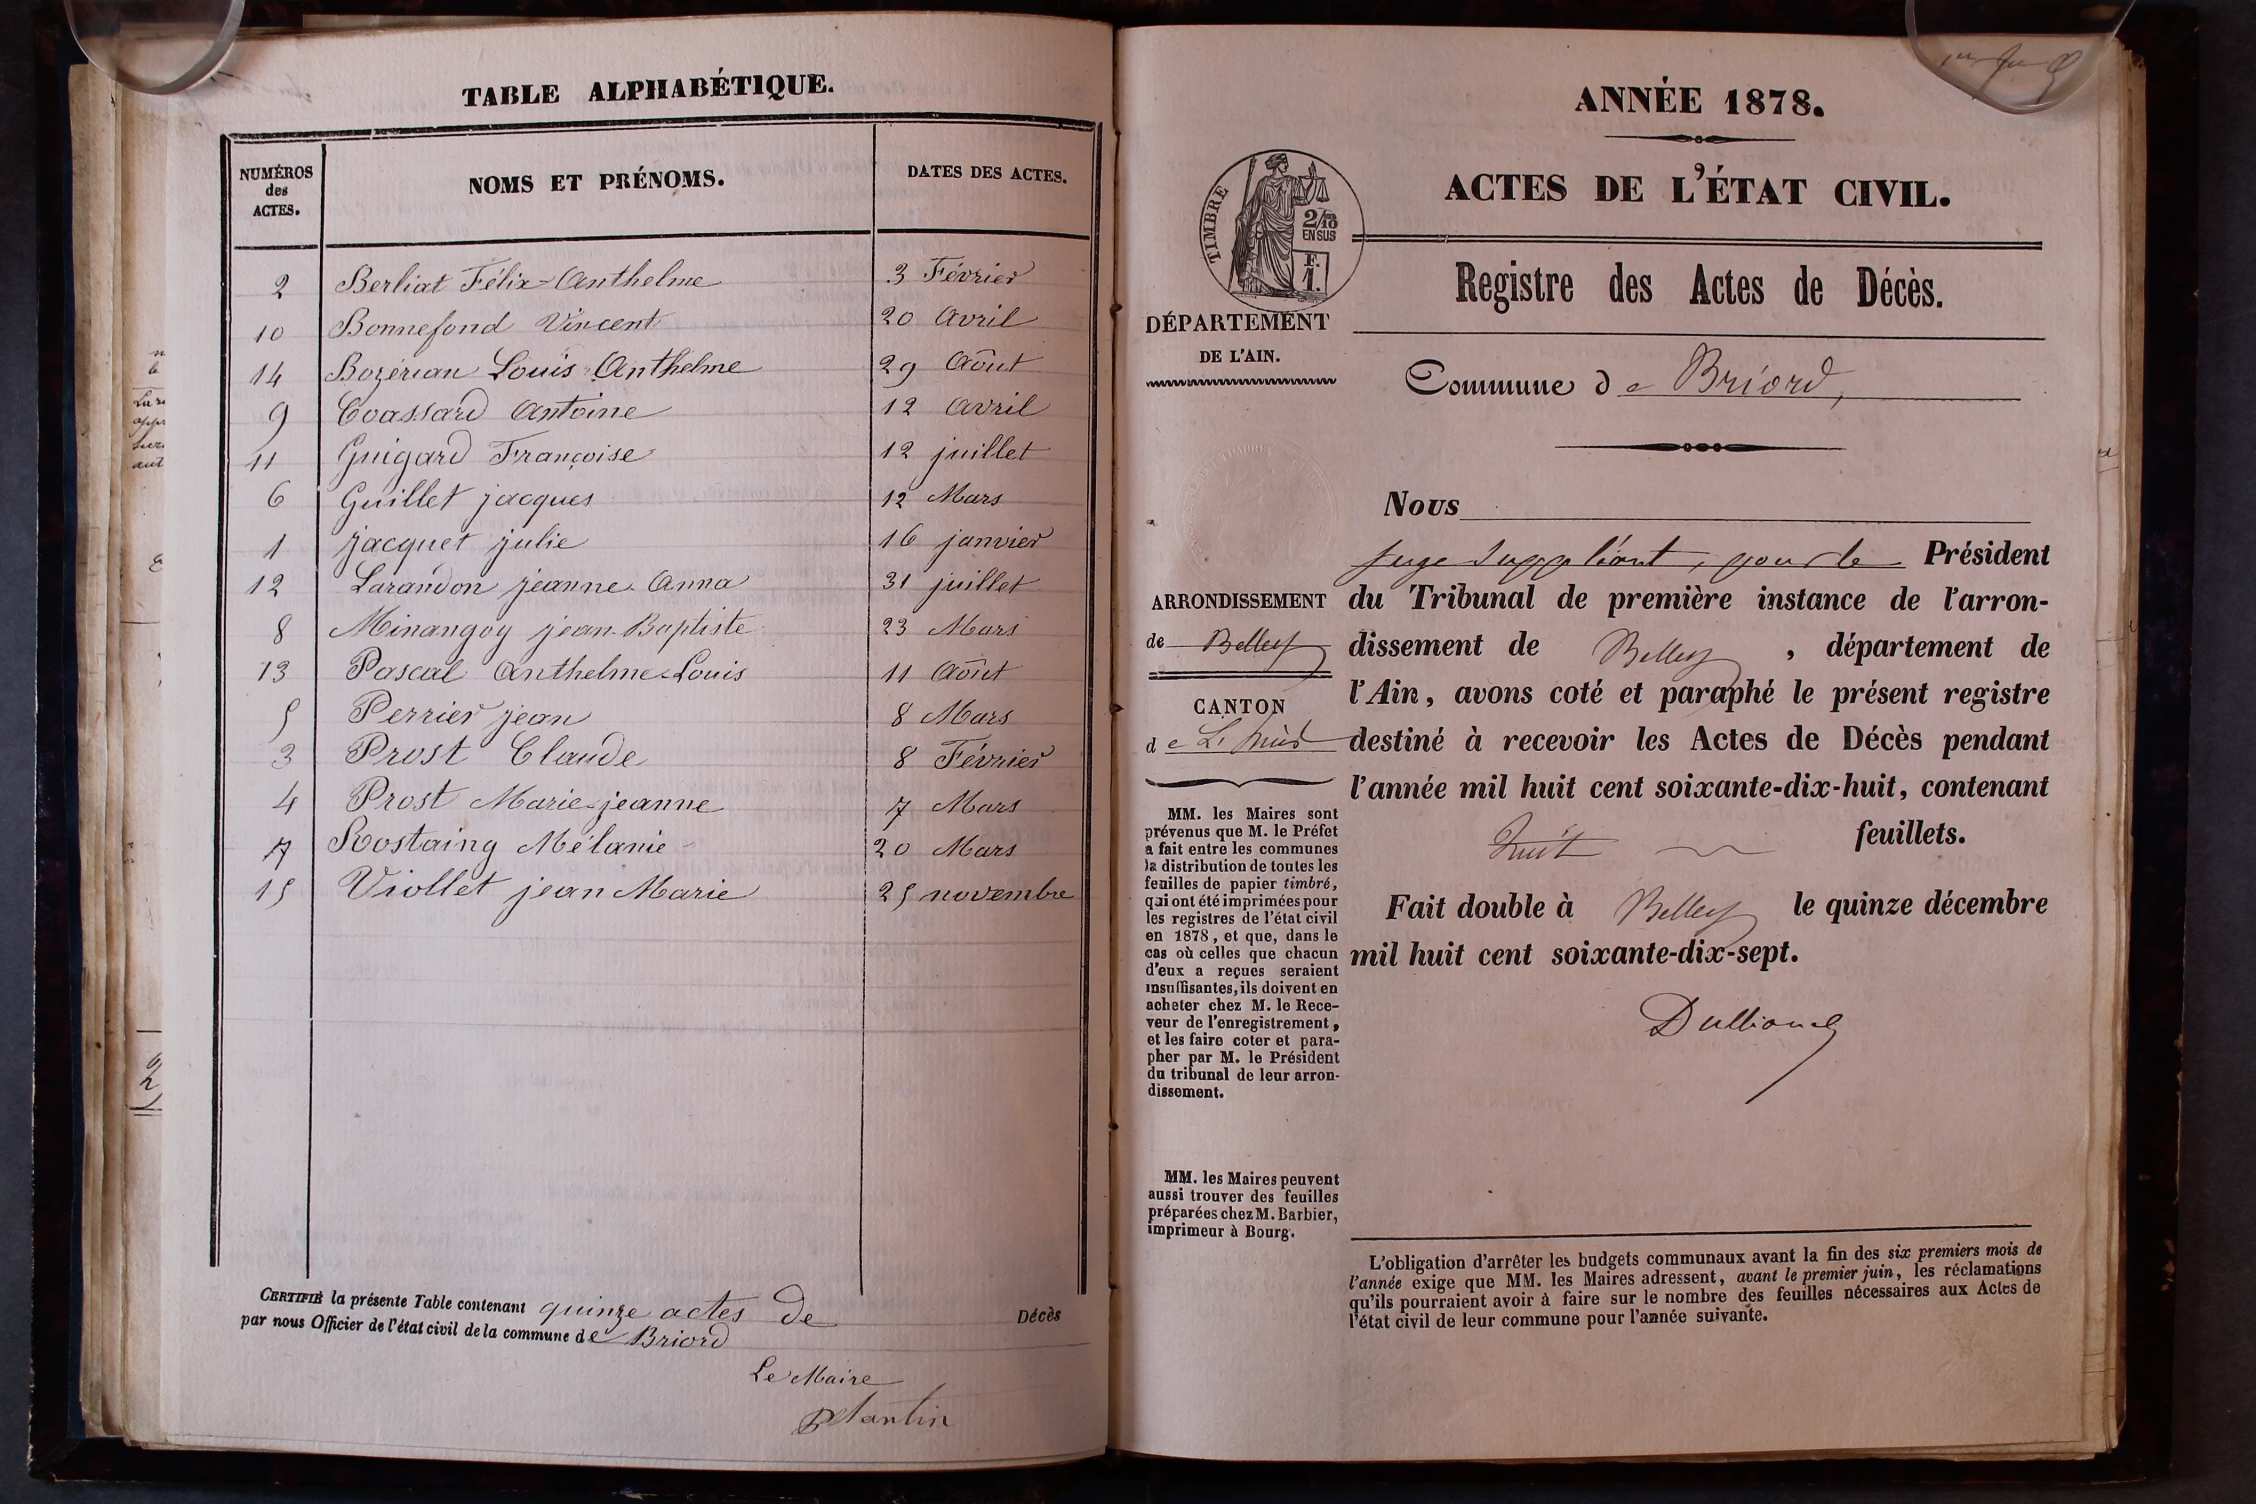 TABLE ALPHABÉTIQUE.
NUMÉROS des ACTES. NOMS ET PRÉNOMS. DATES DES ACTES.
2 Berliat Félix-Anthelme 3 Février
10 Bonnefond Vincent 20 Avril
14 Bozérian Louis Anthelme 29 Août
9 Coassard Antoine 12 Avril
11 Guigard Françoise 12 juillet
6 Guillet jacques 12 Mars
1 jacquet julie 16 janvier
12 Larandon jeanne Anna 31 juillet
8 Minangoy jean-Baptiste 23 Mars
13 Pascal Anthelme-Louis 11 Août
5 Perrier jean 8 Mars
3 Prost Claude 8 Février
4 Prost Marie-jeanne 7 Mars
7 Rostaing Mélanie 20 Mars
15 Viollet jean Marie 25 novembre
CERTIFIÉ la présente Table contenant quinze actes de Décès
par nous Officier de l'état civil de la commune de Briord
Le Maire
ANNÉE 1878.
ACTES DE L'ÉTAT CIVIL.
TIMBRE
2/10 EN SUS
F. 1.
DÉPARTEMENT
DE L'AIN.
Registre des Actes de Décès.
Commune de Briord,
ARRONDISSEMENT
de Belley
CANTON
de
MM. les Maires sont
prévenus que M. le Préfet
a fait entre les communes
la distribution de toutes les
feuilles de papier timbré,
qui ont été imprimées pour
les registres de l'état civil
en 1878, et que, dans le
cas où celles que chacun
d'eux a reçues seraient
insuffisantes, ils doivent en
acheter chez M. le Rece-
veur de l'enregistrement,
et les faire coter et para-
pher par M. le Président
du tribunal de leur arron-
dissement.
MM. les Maires peuvent
aussi trouver des feuilles
préparées chez M. Barbier,
imprimeur à Bourg.
Nous
juge suppléant, pour le Président
du Tribunal de première instance de l'arron-
dissement de Belley, département de
l'Ain, avons coté et paraphé le présent registre
destiné à recevoir les Actes de Décès pendant
l'année mil huit cent soixante-dix-huit, contenant
huit feuillets.
Fait double à Belley le quinze décembre
mil huit cent soixante-dix-sept.
L'obligation d'arrêter les budgets communaux avant la fin des six premiers mois de
l'année exige que MM. les Maires adressent, avant le premier juin, les réclamations
qu'ils pourraient avoir à faire sur le nombre des feuilles nécessaires aux Actes de
l'état civil de leur commune pour l'année suivante.